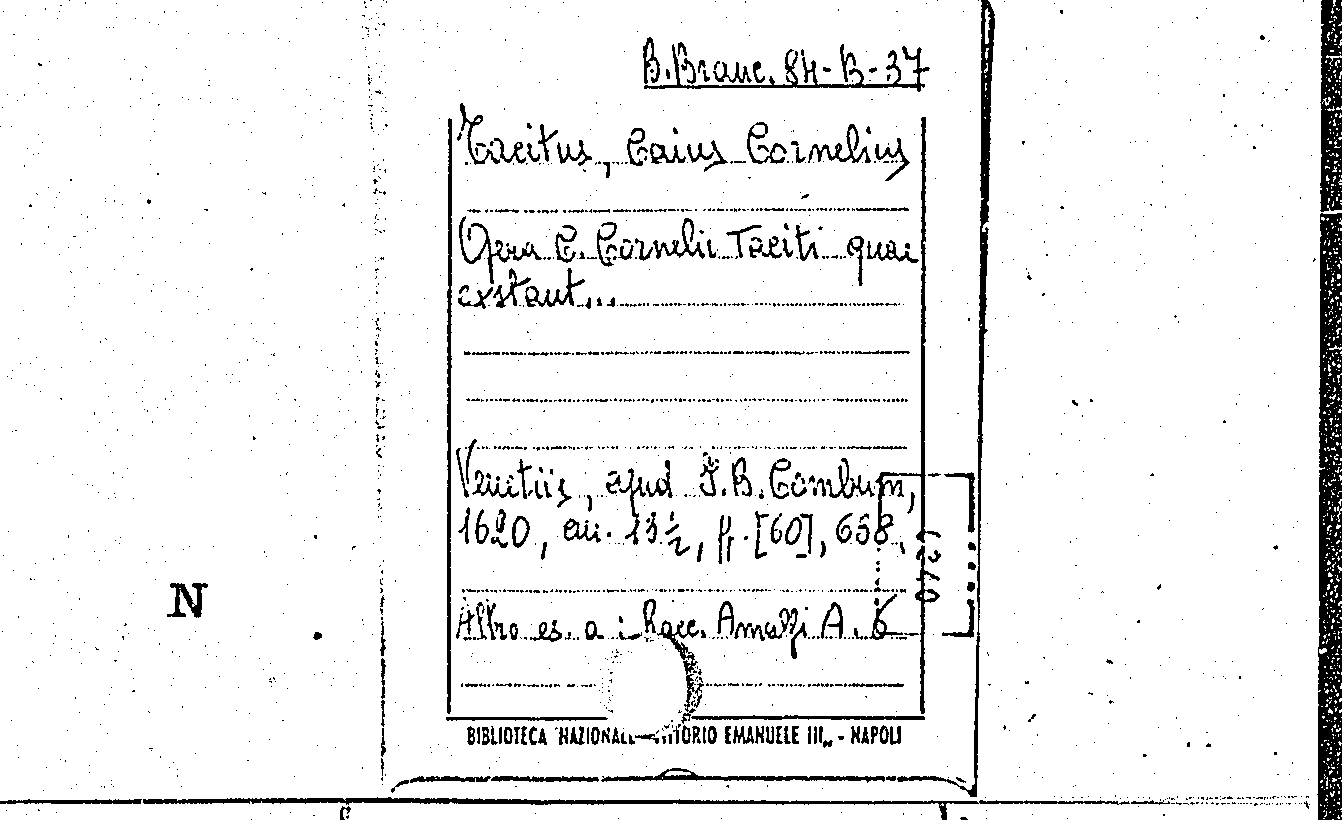 B.Branc. 84-B-37
Tacitus, Caius Cornelius
Opera C. Cornelii Taciti quae
exstant...
Venetiis, apud I.B. Combum,
1620, cm. 13½, pp. [60], 638.
Altro es. a : Racc. Amalfi A. 6
N
BIBLIOTECA NAZIONALE VITTORIO EMANUELE III„ - NAPOLI